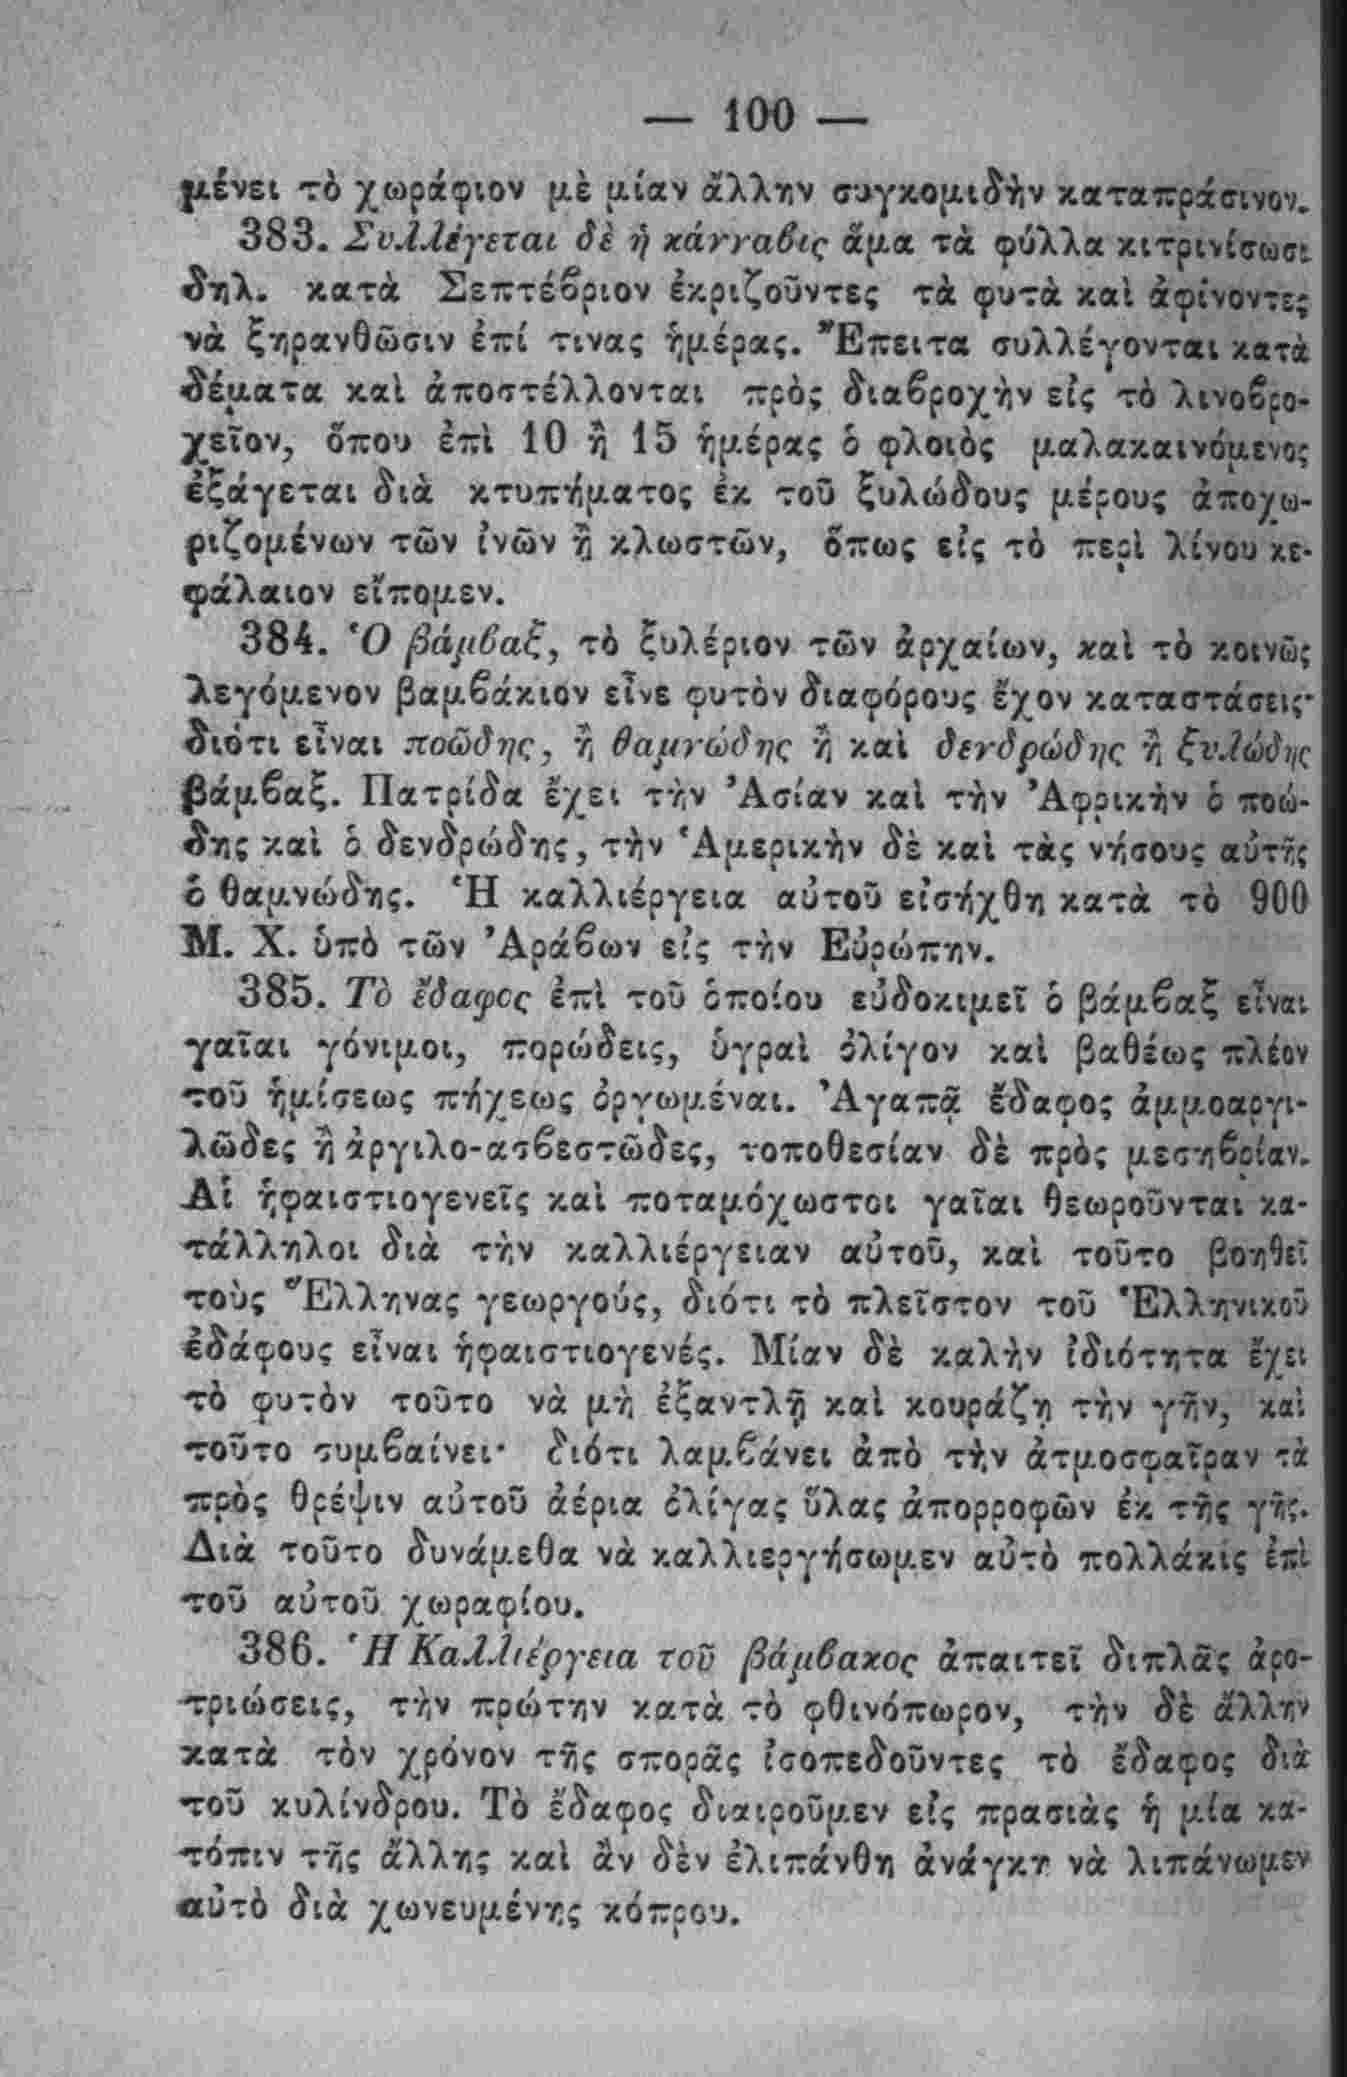 — 100 —
μένει τὸ χωράφιον μὲ μίαν ἄλλην συγκομιδὴν καταπράσινον.
383. Συλλέγεται δὲ ἡ κάνναβις ἅμα τὰ φύλλα κιτρινίσωσι
δηλ. κατὰ Σεπτέβριον ἐκριζοῦντες τὰ φυτὰ καὶ ἀφίνοντες
νὰ ξηρανθῶσιν ἐπί τινας ἡμέρας. Ἔπειτα συλλέγονται κατὰ
δέματα καὶ ἀποστέλλονται πρὸς διαβροχὴν εἰς τὸ λινοβρο-
χεῖον, ὅπου ἐπὶ 10 ἢ 15 ἡμέρας ὁ φλοιὸς μαλακαινόμενος
ἐξάγεται διὰ κτυπήματος ἐκ τοῦ ξυλώδους μέρους ἀποχω-
ριζομένων τῶν ἰνῶν ἢ κλωστῶν, ὅπως εἰς τὸ περὶ λίνου κε-
φάλαιον εἴπομεν.
384. Ὁ βάμβαξ, τὸ ξυλέριον τῶν ἀρχαίων, καὶ τὸ κοινῶς
λεγόμενον βαμβάκιον εἶνε φυτὸν διαφόρους ἔχον καταστάσεις·
διότι εἶναι ποῶδης, ἢ θαμνώδης ἢ καὶ δενδρώδης ἢ ξυλώδης
βάμβαξ. Πατρίδα ἔχει τὴν Ἀσίαν καὶ τὴν Ἀφρικὴν ὁ ποώ-
δης καὶ ὁ δενδρώδης, τὴν Ἁμερικὴν δὲ καὶ τὰς νήσους αὐτῆς
ὁ θαμνώδης. Ἡ καλλιέργεια αὐτοῦ εἰσήχθη κατὰ τὸ 900
Μ. Χ. ὑπὸ τῶν Ἀράβων εἰς τὴν Εὐρώπην.
385. Τὸ ἔδαφος ἐπὶ τοῦ ὁποίου εὐδοκιμεῖ ὁ βάμβαξ εἶναι
γαῖαι γόνιμοι, πορώδεις, ὑγραὶ ὀλίγον καὶ βαθέως πλέον
τοῦ ἡμίσεως πήχεως ὀργωμέναι. Ἀγαπᾷ ἔδαφος ἀμμοαργι-
λῶδες ἢ ἀργιλο-ασβεστῶδες, τοποθεσίαν δὲ πρὸς μεσηβρίαν.
Αἱ ἡφαιστιογενεῖς καὶ ποταμόχωστοι γαῖαι θεωροῦνται κα-
τάλληλοι διὰ τὴν καλλιέργειαν αὐτοῦ, καὶ τοῦτο βοηθεῖ
τοὺς Ἕλληνας γεωργούς, διότι τὸ πλεῖστον τοῦ Ἑλληνικοῦ
ἐδάφους εἶναι ἡφαιστιογενές. Μίαν δὲ καλὴν ἰδιότητα ἔχει
τὸ φυτὸν τοῦτο νὰ μὴ ἐξαντλῇ καὶ κουράζῃ τὴν γῆν, καὶ
τοῦτο συμβαίνει· διότι λαμβάνει ἀπὸ τὴν ἀτμοσφαῖραν τὰ
πρὸς θρέψιν αὐτοῦ ἀέρια ὀλίγας ὕλας ἀπορροφῶν ἐκ τῆς γῆς.
Διὰ τοῦτο δυνάμεθα νὰ καλλιεργήσωμεν αὐτὸ πολλάκις ἐπὶ
τοῦ αὐτοῦ χωραφίου.
386. Ἡ Καλλιέργεια τοῦ βάμβακος ἀπαιτεῖ διπλᾶς ἀρο-
τριώσεις, τὴν πρώτην κατὰ τὸ φθινόπωρον, τὴν δὲ ἄλλην
κατὰ τὸν χρόνον τῆς σπορᾶς ἰσοπεδοῦντες τὸ ἔδαφος διὰ
τοῦ κυλίνδρου. Τὸ ἔδαφος διαιροῦμεν εἰς πρασιὰς ἡ μία κα-
τόπιν τῆς ἄλλης καὶ ἂν δὲν ἐλιπάνθη ἀνάγκη νὰ λιπάνωμεν
αὐτὸ διὰ χωνευμένης κόπρου.